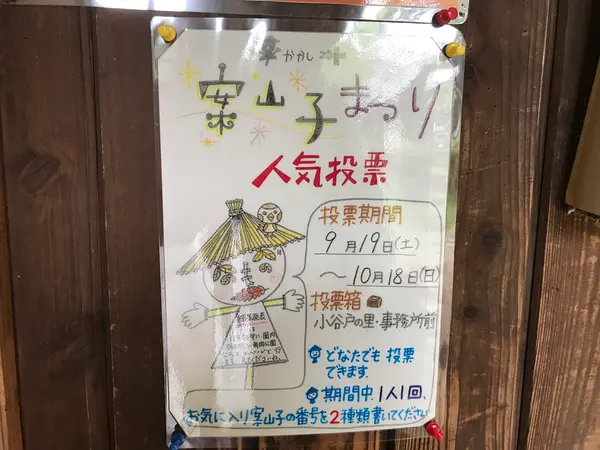 かかし
案山子まつり
人気投票
投票期間
9月19日(土)
～10月18日(日)
投票箱
小谷戸の里・事務所前
どなたでも投票
できます
期間中1人1回、
お気に入り案山子の番号を2種類書いてください